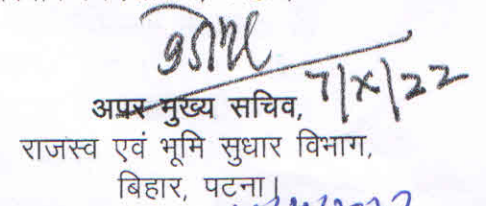 7/X/22
अपर मुख्य सचिव,
राजस्व एवं भूमि सुधार विभाग,
बिहार, पटना।